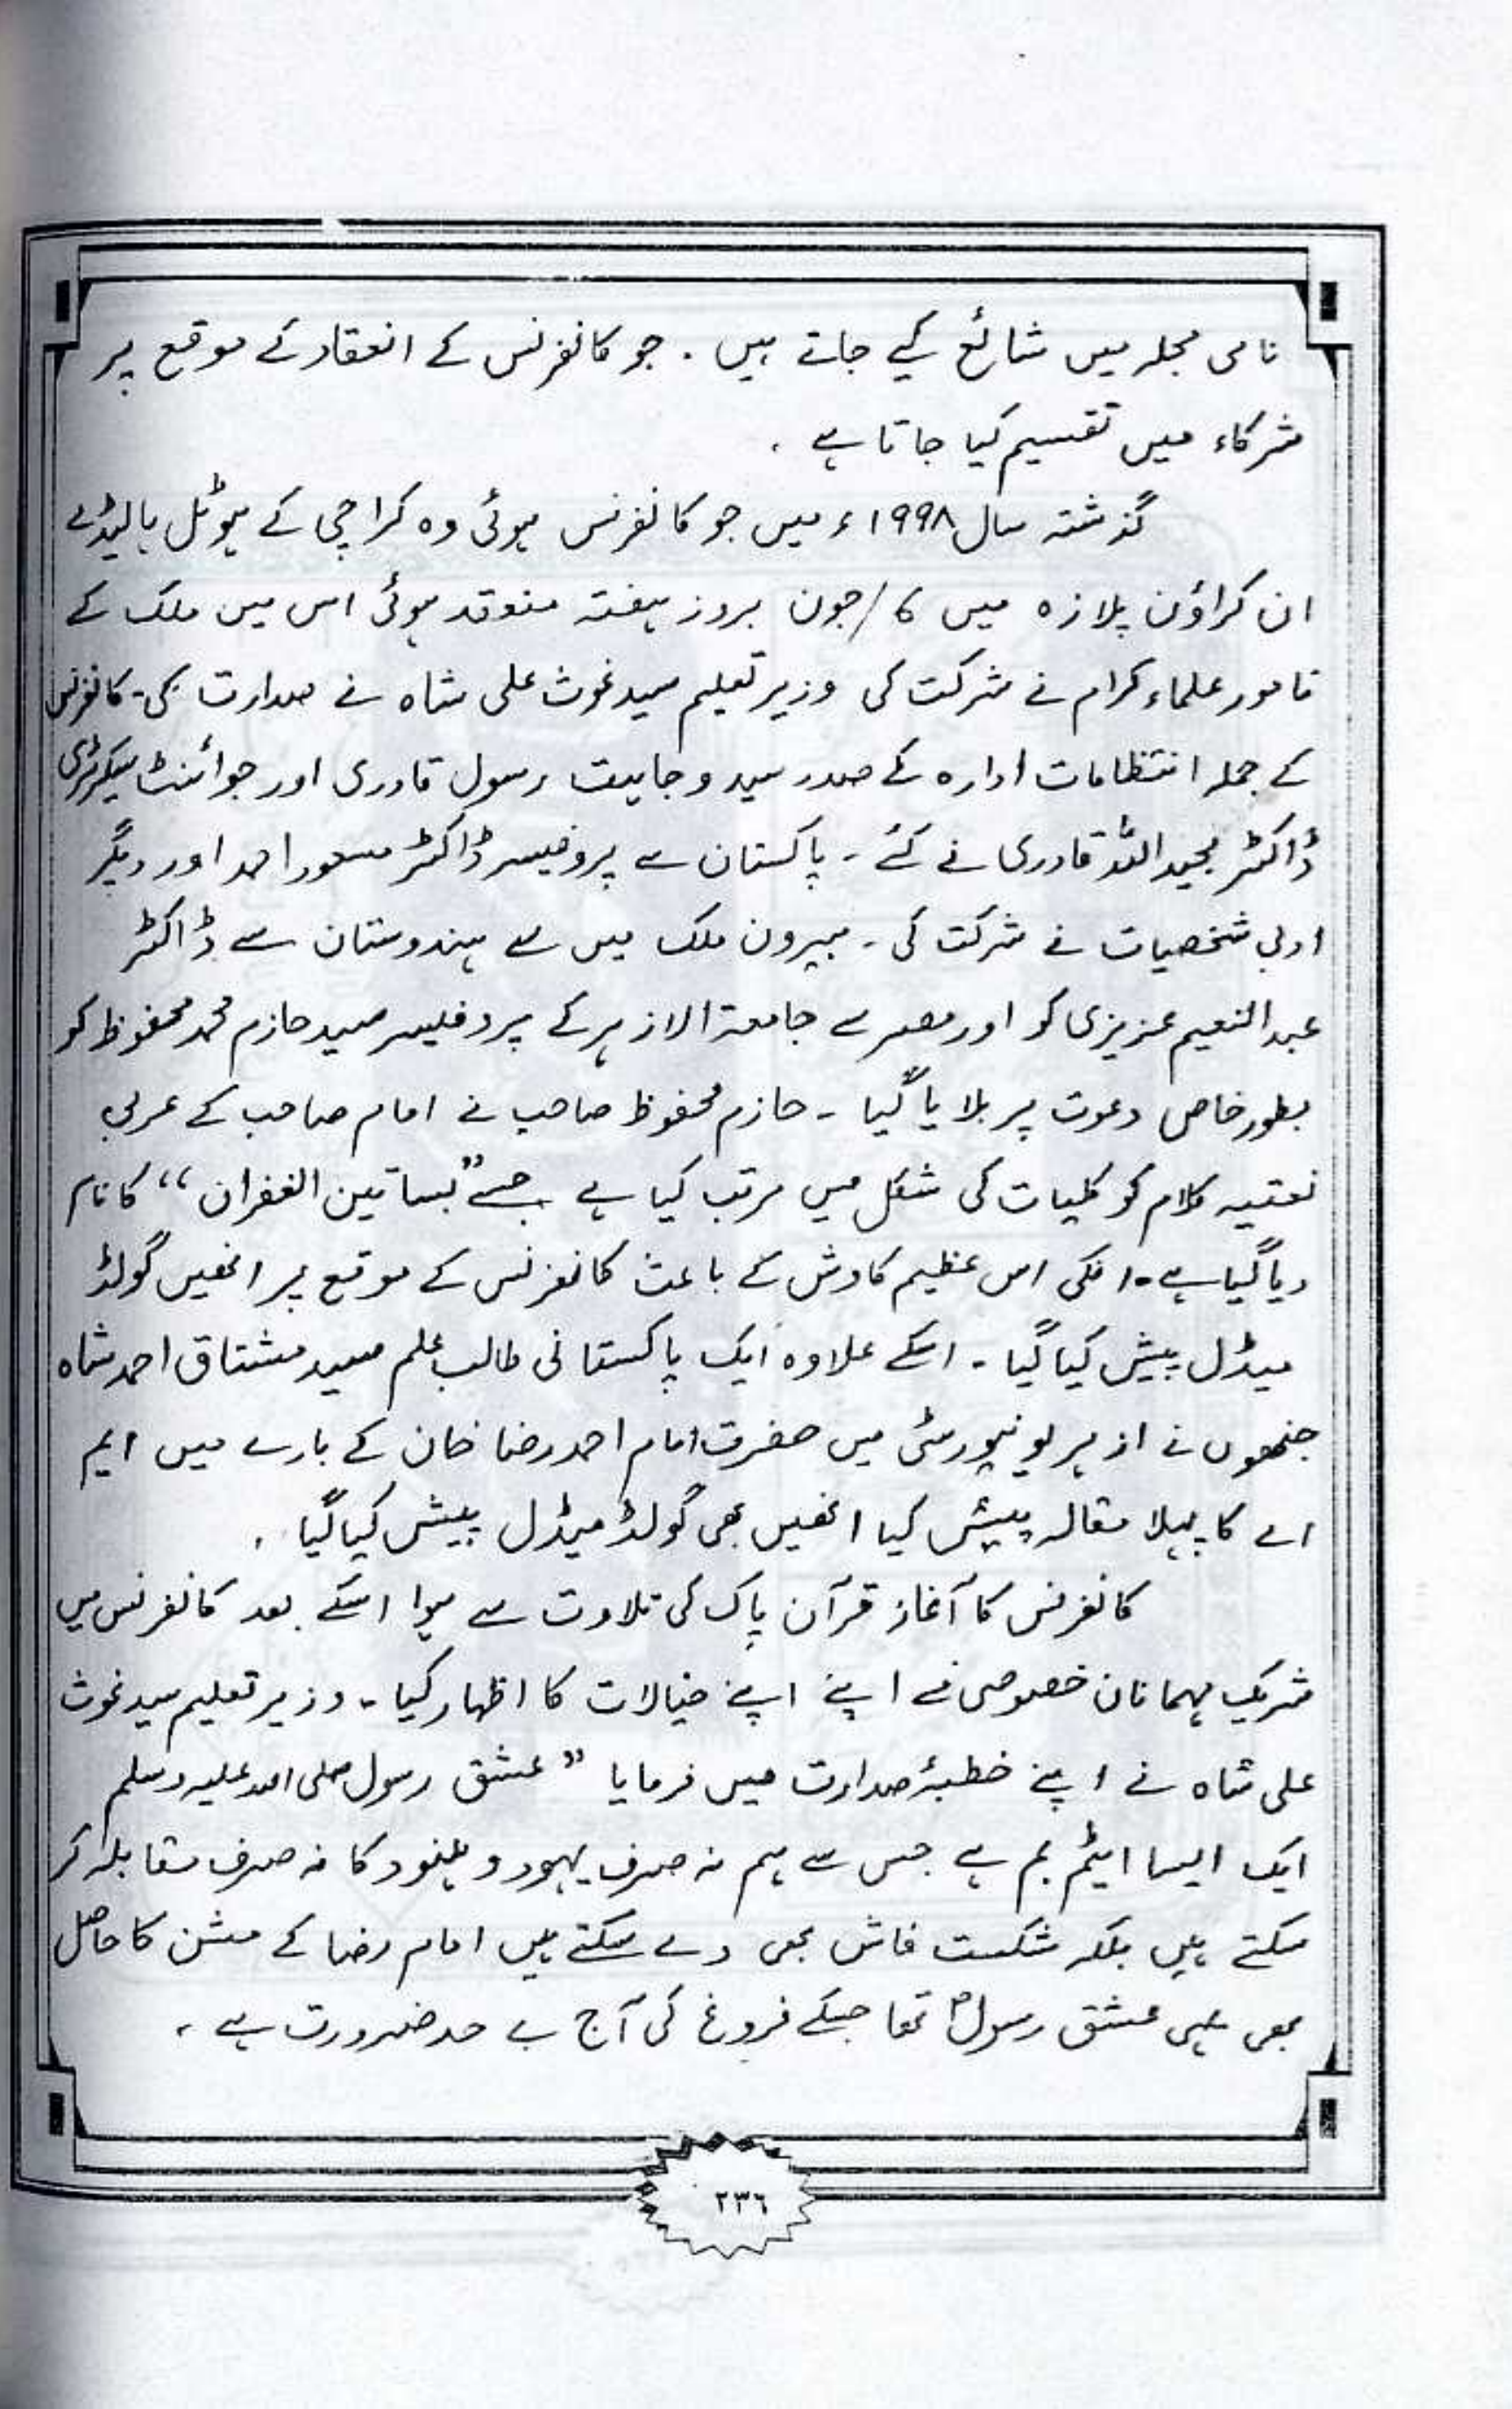 نامی مجلہ میں شائع کیے جاتے ہیں ۔ جو کانفرنس کے انعقاد کے موقع پر
شرکاء میں تقسیم کیا جاتا ہے ۔
گذشتہ سال ۱۹۹۸ء میں جو کانفرنس ہوئی وہ کراچی کے ہوٹل ہالیڈے
ان کراؤن پلازہ میں ۶/جون بروز ہفتہ منعقد ہوئی اس میں ملک کے
نامور علماء کرام نے شرکت کی وزیر تعلیم سید غوث علی شاہ نے صدارت کی۔ کانفرنس
کے جملہ انتظامات ادارہ کے صدر سید وجاہت رسول قادری اور جوائنٹ سیکرٹری
ڈاکٹر مجید اللہ قادری نے کئے ۔ پاکستان سے پروفیسر ڈاکٹر مسعور احمد اور دیگر
ادبی شخصیات نے شرکت کی ۔ بیرون ملک میں سے ہندوستان سے ڈاکٹر
عبد النعیم عزیزی کو اور مصر سے جامعۃ الازہر کے پروفیسر سید حازم محمد محفوظ کو
بطور خاص دعوت پر بلایا گیا ۔ حازم محفوظ صاحب نے امام صاحب کے عربی
نعتیہ کلام کو کلیات کی شکل میں مرتب کیا ہے جسے ”بساتین الغفران“ کا نام
دیا گیا ہے۔ انکی اس عظیم کاوش کے باعث کانفرنس کے موقع پر انھیں گولڈ
میڈل پیش کیا گیا ۔ اسکے علاوہ ایک پاکستانی طالب علم سید مشتاق احمد شاہ
جنھوں نے ازہر یونیورسٹی میں حضرت امام احمد رضا خان کے بارے میں ایم
اے کا پہلا مقالہ پیش کیا انھیں بھی گولڈ میڈل پیش کیا گیا ۔
کانفرنس کا آغاز قرآن پاک کی تلاوت سے ہوا اسکے بعد کانفرنس میں
شریک مہمانان خصوصی نے اپنے اپنے خیالات کا اظہار کیا ۔ وزیر تعلیم سید غوث
علی شاہ نے اپنے خطبۂ صدارت میں فرمایا ” عشق رسول صلی اللہ علیہ وسلم
ایک ایسا ایٹم بم ہے جس سے ہم نہ صرف یہود و ہنود کا نہ صرف مقابلہ کر
سکتے ہیں بلکہ شکست فاش بھی دے سکتے ہیں امام رضا کے مشن کا حاصل
بھی یہی عشق رسولؐ تھا جسکے فروغ کی آج بے حد ضرورت ہے ،
۲۳۶